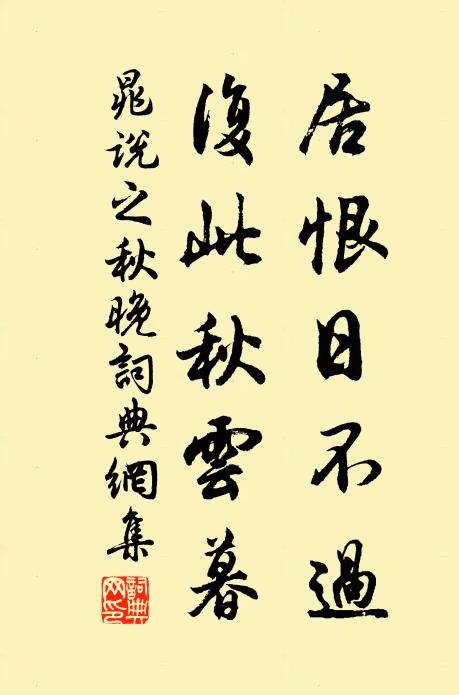 居恨日不過
復此秋雲暮
晁說之秋晚詞典網集
詞典网印